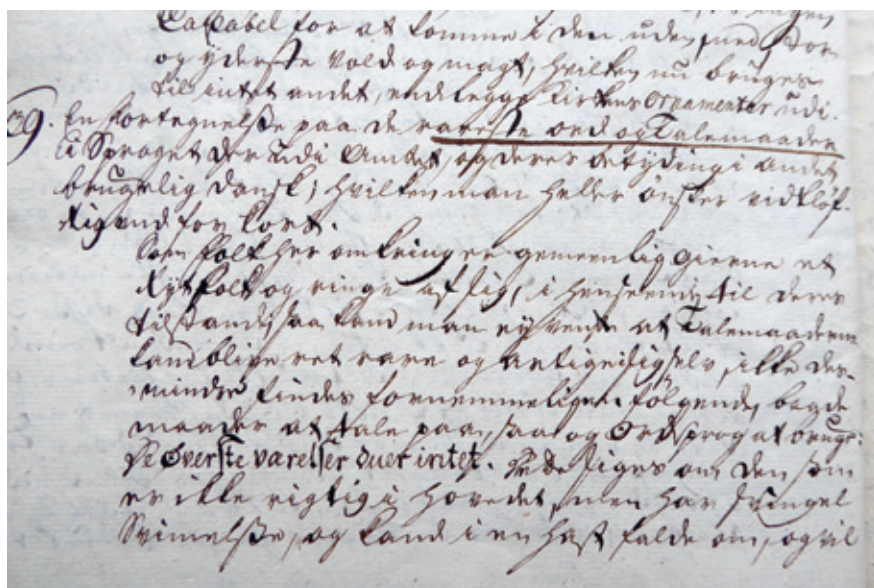 Capabel for at komme i den, uden med stor
og yderste vold og magt, hvilken nu bruges
til intet andet, end legge Kirkens Ornamenter udi.
39. En fortegnelse paa de rareste ord og Talemaader
i Sproget der udi Amtet, og deres betyding i andet
brugelig dansk; hvilken man heller ønsker vidtløf-
tig end for kort.
Som folk her omkring er gemeenlig gierne et
folk og ringe af sig, i henseende til deres
tilstand, saa kand man ey vente at Talemaaderne
kand blive ret rare og artige i sig selv, ikke des-
mindre findes fornemmeligen følgende, begde
maader at tale paa, saa og Ordsprog at bruge:
De Øverste værelser duer intet. siges om den som
er ikke rigtig i Hovedet, men har svingel
Svimelse, og kand i en hast falde om, og vil